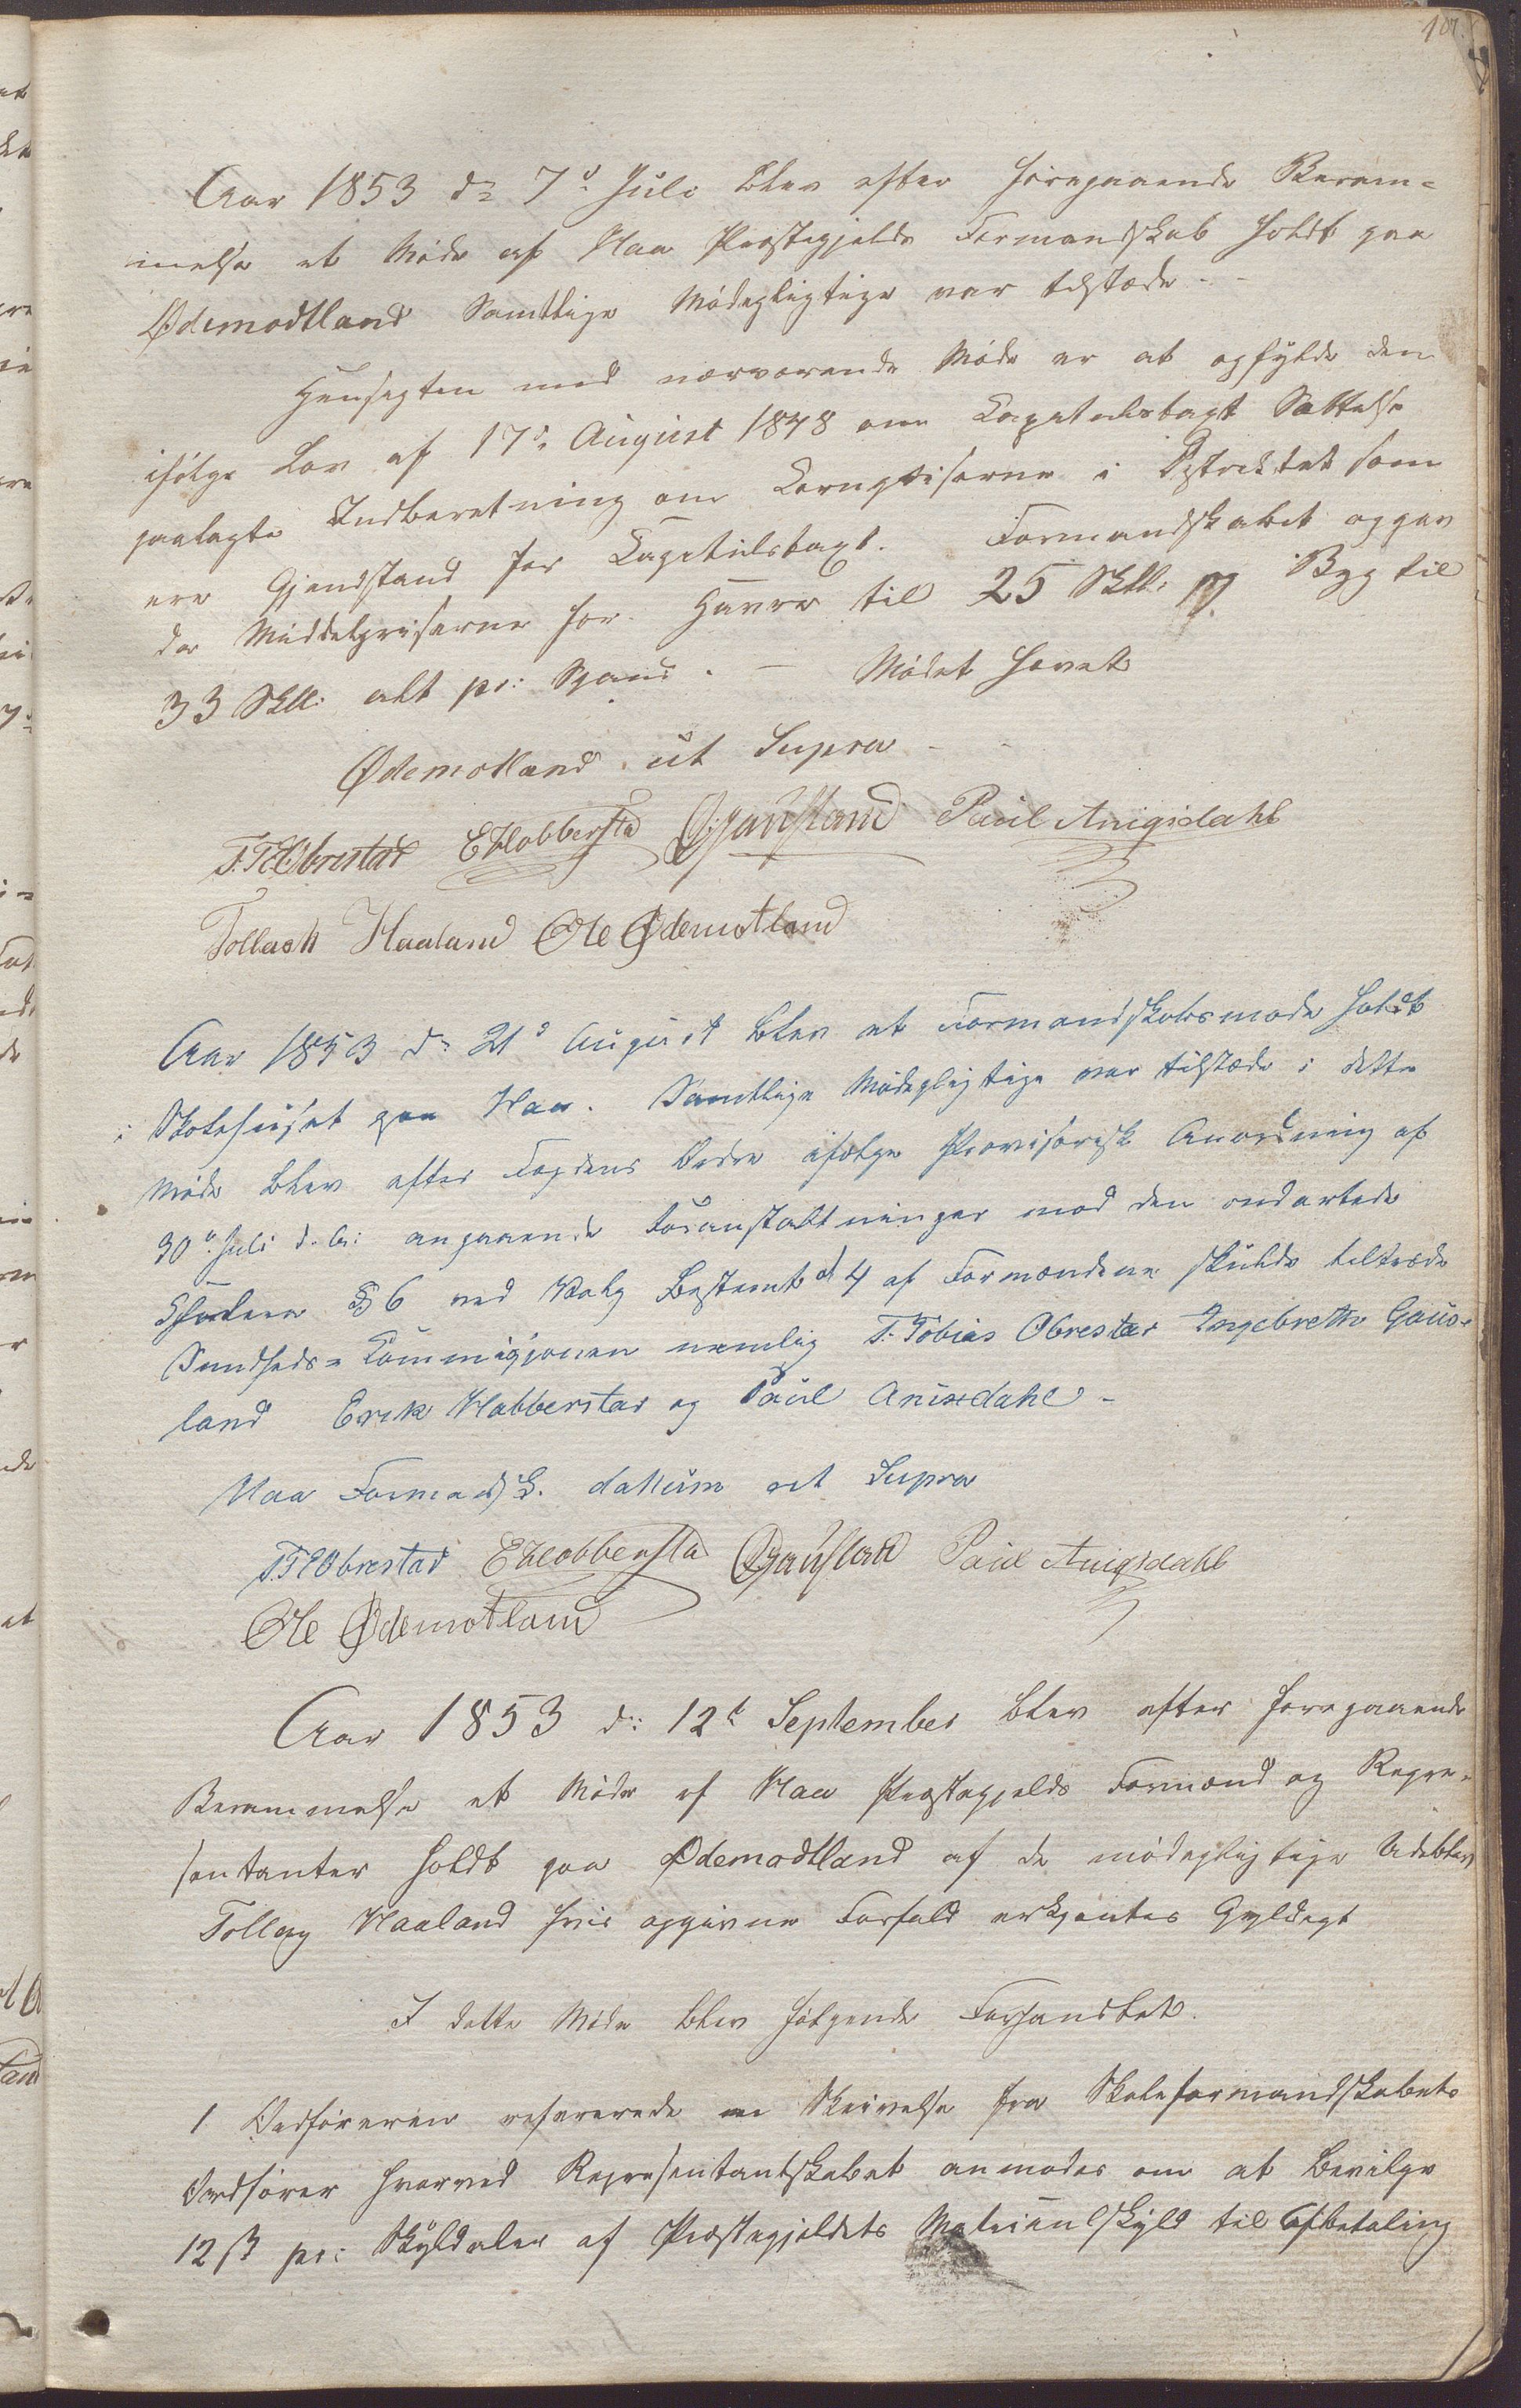 107.
Aar 1853 d: 7d Juli blev efter foregaaende Beram-
melse et Møde af Haa Præstegjelds Formandskab holdt paa
Ødemodtland Samtlige Mødepligtige var tilstæde --
Hensigten med nærværende Møde er at opfylde den
ifølge Lov af 17d August 1848 om Capitelstaxt Sættelse
paalagte Indberetning om Kornpriserne i Distriktet som
ere Gjendstand for Capitelstaxt. Formandskabet opgav
da Middelpriserne for Havre til 25 Skll: og Byg til
33 Skll: alt pr: Spand. — Mødet hævet
Ødemotland ut Supra --
T. T. Obrestad E Hobbersta Gausland Paul Anigsdahl
Tollach Haaland Ole Ødemotland
Aar 1853 d: 21d August blev et Formandskabsmøde holdt
i Skolehuset paa Haa. Samtlige Mødepligtige var tilstæde i dette
Møde blev efter Fogdens Ordre ifølge Provisorisk Anordning af
30te Juli d. A: angaaende Foranstaltninger mod den ondartede
Cholera § 6 ved Valg Bestemt at 4 af Formændene skulde tiltræde
Sundheds-Commisjonen nemlig T. Tobias Obrestad Ingebreth Gaus-
land Erik Habberstad og Paul Aniksdahl -
Haa Formandsk. dattum ut Supra
T. T. Obrestad E Hobbersta Gausland Paul Anigsdahl
Ole Ødemotland
Aar 1853 d: 12t September blev efter foregaaende
Berammelse et Møde af Haa Præstegjelds Formænd og Repre-
sentanter holdt paa Ødemodtland af de mødepligtige Udeblev
Tollag Haaland hvis opgivne Forfald erkjentes Gyldigt
I dette Møde blev følgende Forhandlet.
1 Ordføreren refererede en Skrivelse fra Skoleformandskabets
Ordfører hvorved Representantskabet anmodes om at bevilge
12 ß pr: Skylddaler af Præstegjeldets Matriculskyld til Afbetaling